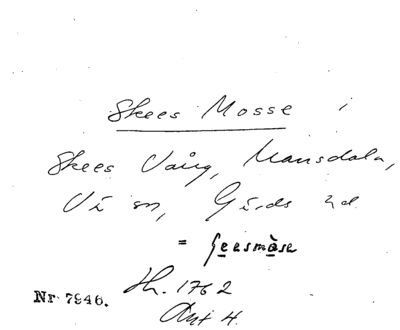 Skees Mosse i
Skees Vång, Mansdala,
Vi sn, Gärds hd.
= ʃeesmàse
Nr 7946. Hh. 1762
Akt 4.